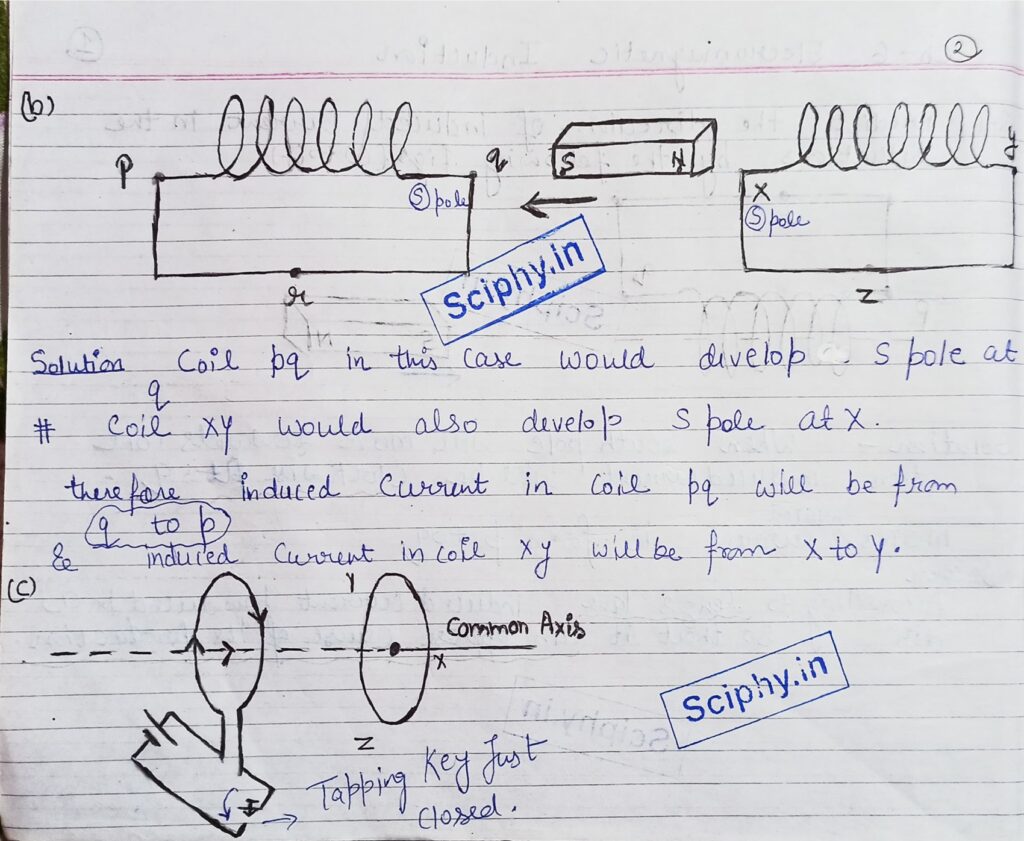 2
(b)
P
q
S N
X
y
S pole
S pole
r
Z
Sciphy.in
Solution Coil pq in this case would divelop S pole at
q
# Coil XY would also develop S pole at X.
therefore induced Current in Coil pq will be from
q to p
& induced Current in coil xy will be from X to Y.
(c)
Y
Common Axis
X
Z
Sciphy.in
Tapping Key Just
Closed.